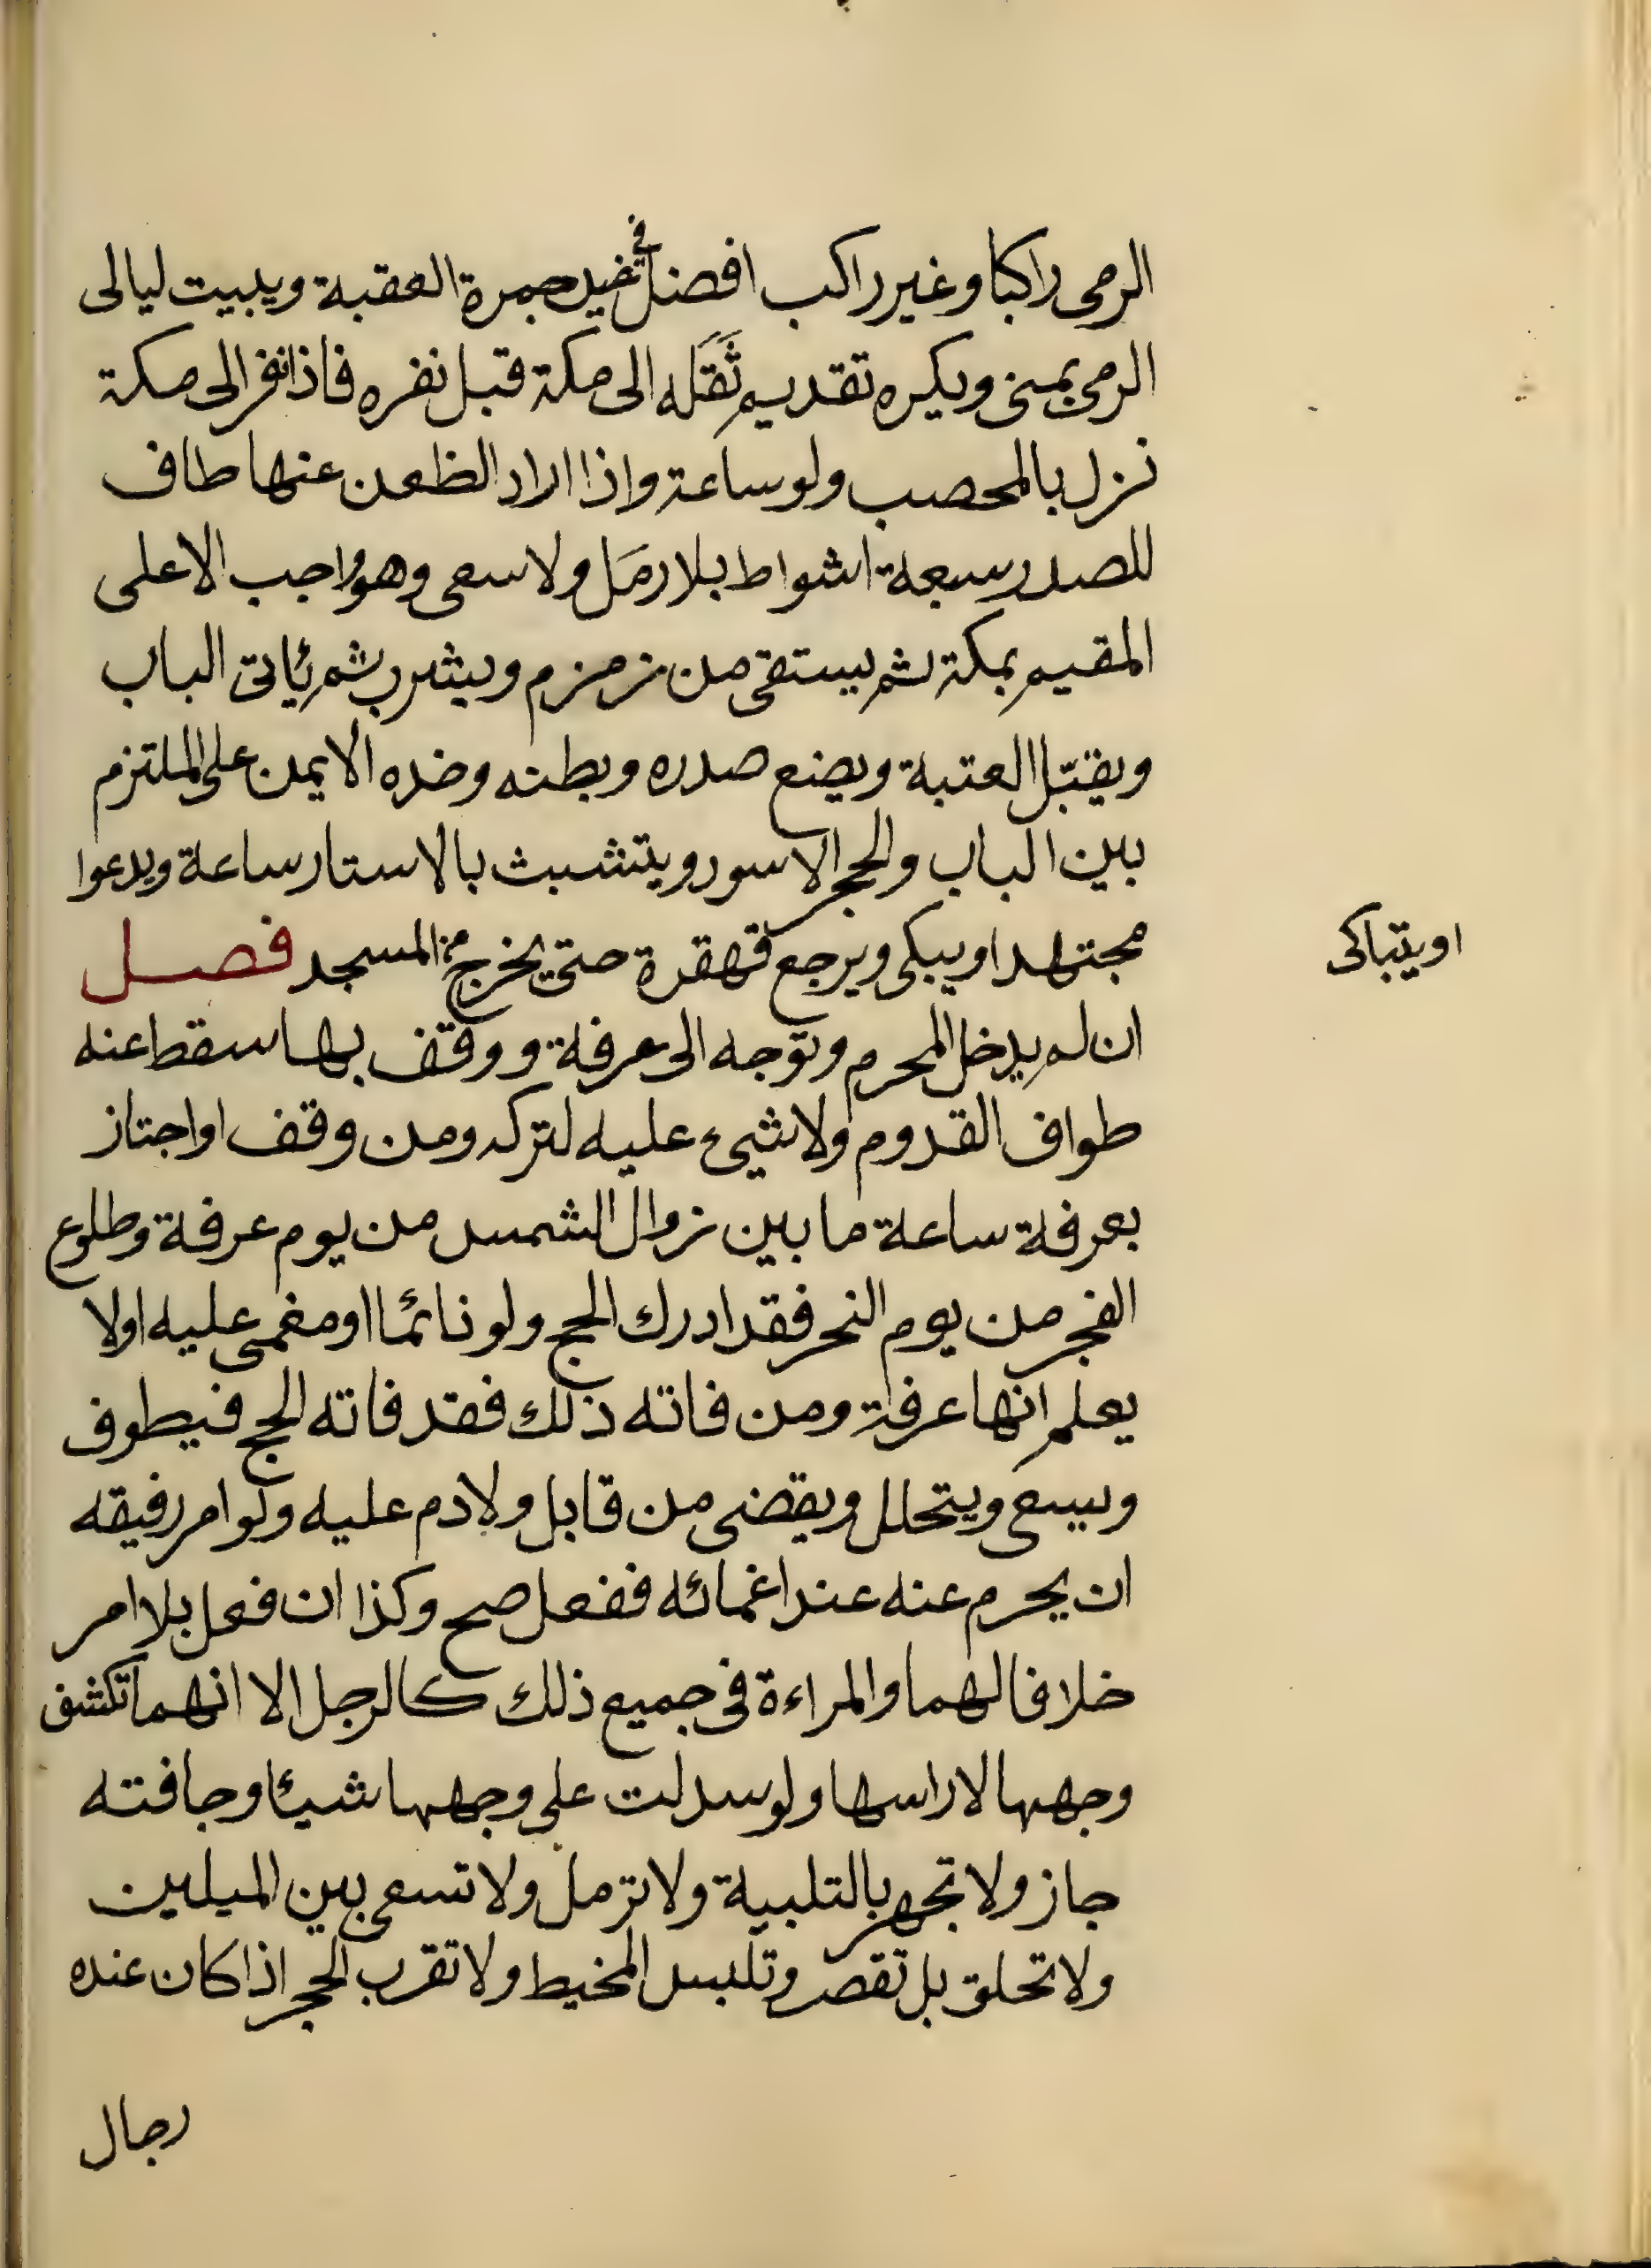 الرمى راكبا وغير راكب افضل في غير جمرة العقبة ويبيت ليالى
الرمى بمنى ويكره تقديم ثَقَله الى مكة قبل نفره فاذا نفر الى مكة
نزل بالمحصب ولو ساعة واذا اراد الظعن عنها طاف
للصدر سبعة اشواط بلا رمَل ولا سعى وهو واجب الا على
المقيم بمكة ثم يستقى من زمزم ويشرب ثم يأتى الباب
ويقبّل العتبة ويضع صدره وبطنه وخده الايمن على الملتزم
بين الباب والحجر الاسود ويتشبث بالاستار ساعة ويدعوا
مجتهدا ويبكى ويرجع قهقرة حتى يخرج من المسجد فصل
او يتباكى
ان لم يدخل المحرم وتوجه الى عرفة ووقف بها سقط عنه
طواف القدوم ولا شيء عليه لتركه ومن وقف او اجتاز
بعرفة ساعة ما بين زوال الشمس من يوم عرفة وطلوع
الفجر من يوم النحر فقد ادرك الحج ولو نائما او مغمى عليه او لا
يعلم انها عرفة ومن فاته ذلك فقد فاته الحج فيطوف
ويسعى ويتحلل ويقضى من قابل ولا دم عليه ولو امر رفيقه
ان يحرم عنه عند اغمائه ففعل صح وكذا ان فعل بلا امر
خلافا لهما والمراءة فى جميع ذلك كالرجل الا انهما تكشف
وجهها لا راسها ولو سدلت على وجهها شيئا وجافته
جاز ولا تجهر بالتلبية ولا ترمل ولا تسعى بين الميلين
ولا تحلق بل تقصر وتلبس المخيط ولا تقرب الحجر اذا كان عنده
رجال